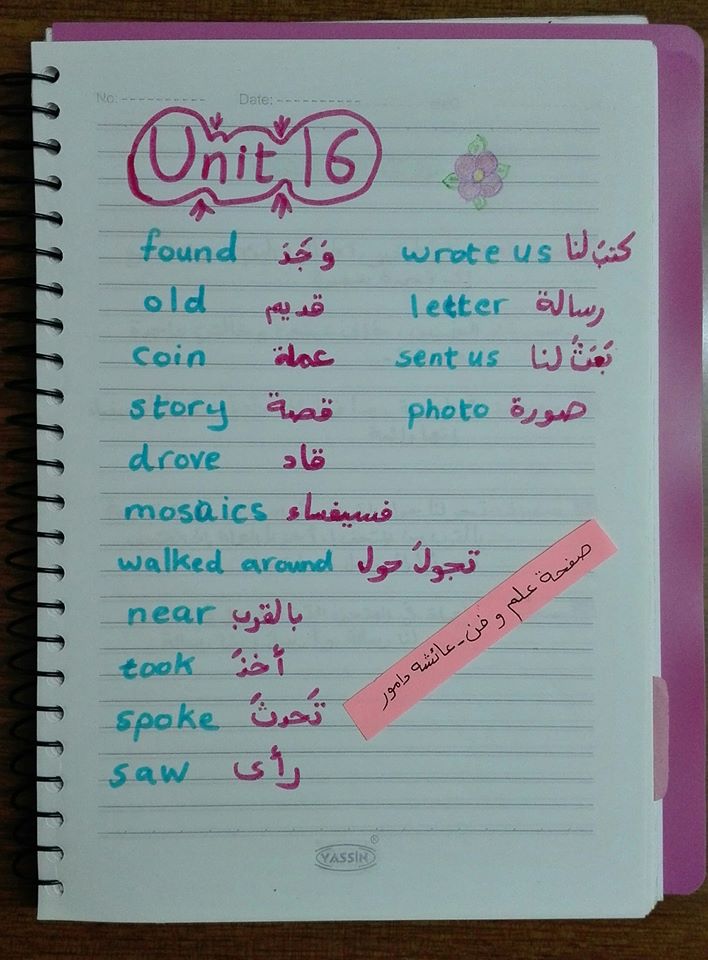 No: ---------- Date: ----------
Unit 16
found وَجَدَ
old قديم
coin عملة
story قصة
drove قاد
mosaics فسيفساء
walked around تجولَ حول
near بالقرب
took أخذَ
spoke تَحدثَ
saw رأى
wrote us كتبَ لنا
letter رسالة
sent us بَعَثَ لنا
photo صورة
صفحة علم و فن - عائشه دامور
YASSİN®